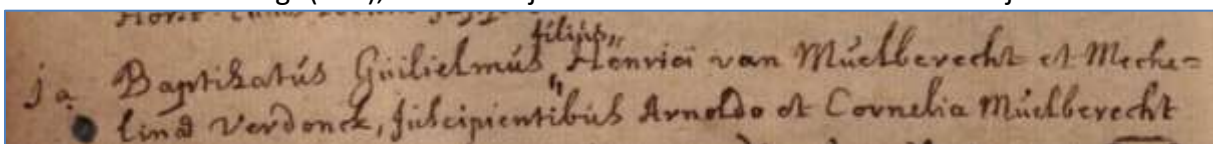 filius„
ja Baptisatús Guilielmús „ Henrici van Múelberecht et Meche=
linæ Verdonck, súscipientibús Arnoldo et Cornelia Múelberecht